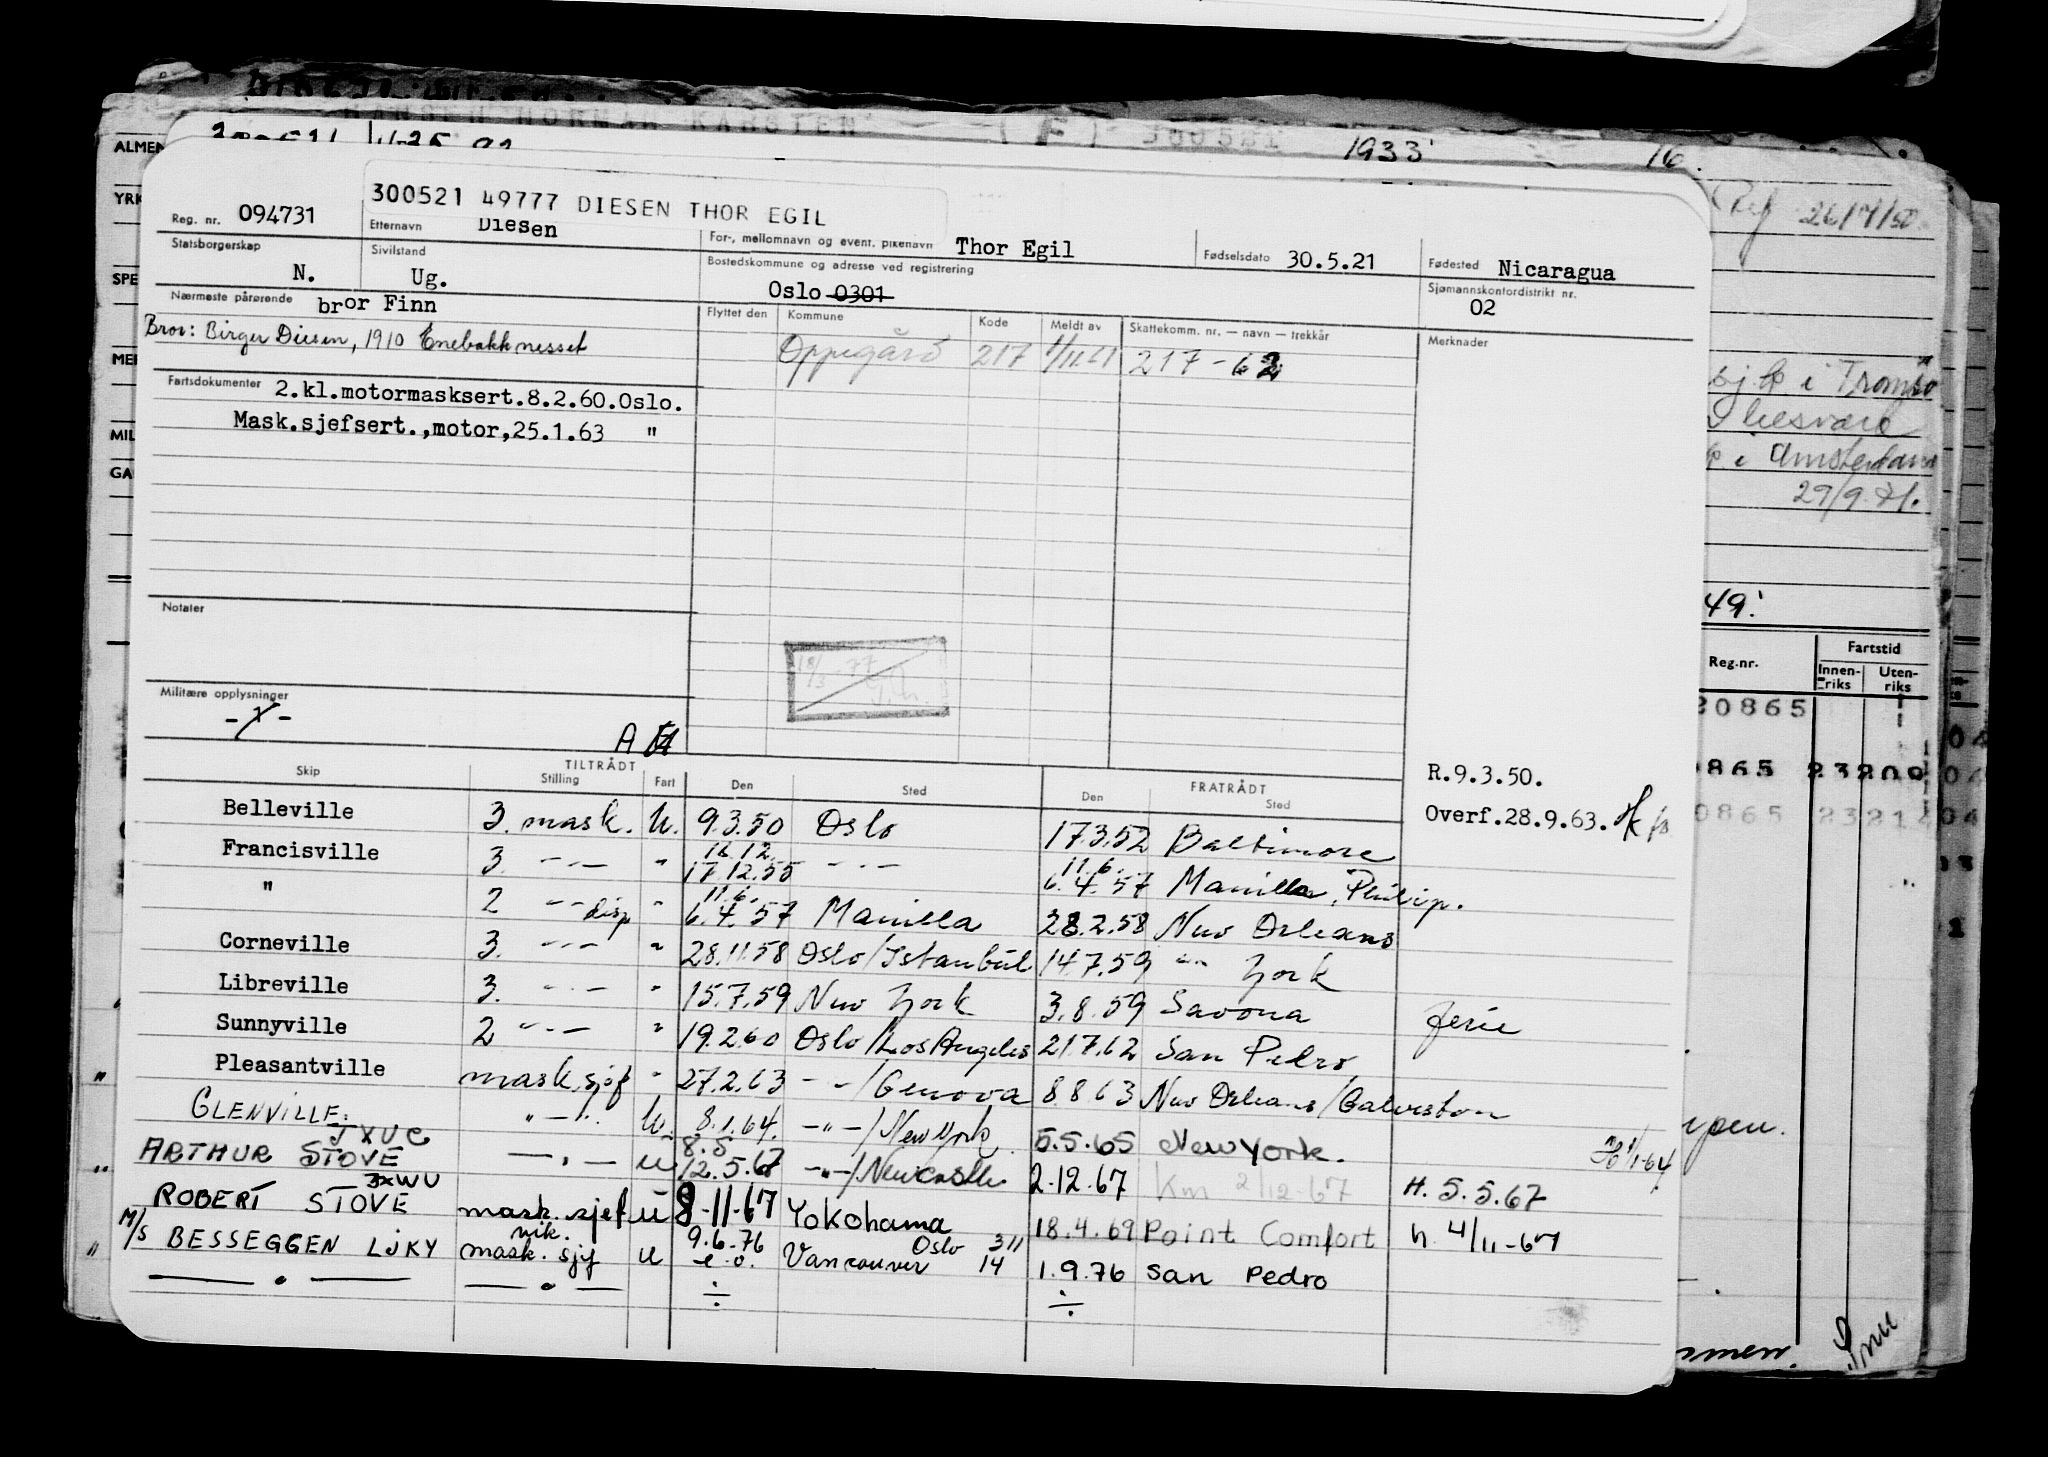 HANSEN NORMAN KARSTEN (F) 300521
ALMEN
1933
16.
YRK
26/7/50
SPE
MER
MIL
GA
300521 49777 DIESEN THOR EGIL
Reg. nr. 094731
Etternavn Diesen
For-, mellomnavn og event. pikenavn Thor Egil
Fødselsdato 30.5.21
Fødested Nicaragua
Statsborgerskap N.
Sivilstand Ug.
Bostedskommune og adresse ved registrering Oslo 0301
Sjømannskontordistrikt nr. 02
Nærmeste pårørende bror Finn
Bror: Birger Diesen, 1910 Enebakkneset
Flyttet den Kommune Kode Meldt av Skattekomm. nr. — navn — trekkår Merknader
Oppegård 217 1/11.61 217-62
Fartsdokumenter 2.kl.motormasksert.8.2.60.Oslo.
Mask.sjefsert.,motor,25.1.63 "
i Tromsø
i Amsterdam
29/9.71.
Notater
18/3-77
Militære opplysninger
A
49.
Reg.nr. Fartstid
Innenriks Utenriks
20865
0865 23209
0865 23214
TILTRÅDT FRATRÅDT
Skip Stilling Fart Den Sted Den Sted
R.9.3.50.
Overf.28.9.63.
Belleville 3. mask. U. 9.3.50 Oslo 17.3.52 Baltimore
Francisville 3. —"— " 16.12. 17.12.55 —"— 11.6. 6.4.57 Manilla, Philip.
" 2 —"— disp " 11.6. 6.4.57 Manilla 28.2.58 New Orleans
Corneville 3. —"— " 28.11.58 Oslo/Istanbul 14.7.59 —"— York
Libreville 3. —"— " 15.7.59 New York 3.8.59 Savona Ferie
Sunnyville 2 —"— " 19.2.60 Oslo/Los Angeles 21.7.62 San Pedro
Pleasantville mask.sjef " 27.2.63 —"—/Genova 8.8.63 New Orleans/Galveston
GLENVILLE. —"— U. 8.1.64. —"—/New York 5.5.65 New York.
JXUC
ARTHUR STOVE —"— U 8.5 12.5.67 —"—/Newcastle 2.12.67 Km 2/12-67 H. 5.5.67
JXWU
ROBERT STOVE mask. sjef U 8-11-67 Yokohama 18.4.69 Point Comfort h. 4/11-67
M/S BESSEGGEN LJKY vik. mask. sjef U 9.6.76 e.o. Oslo Vancouver 311 14 1.9.76 San Pedro
—"— —"— ÷ ÷